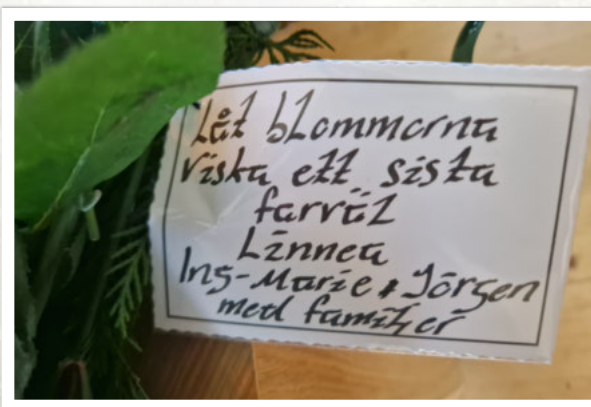 Låt blommorna
viska ett sista
farväl
Linnea
Ing-Marie & Jörgen
med familjer